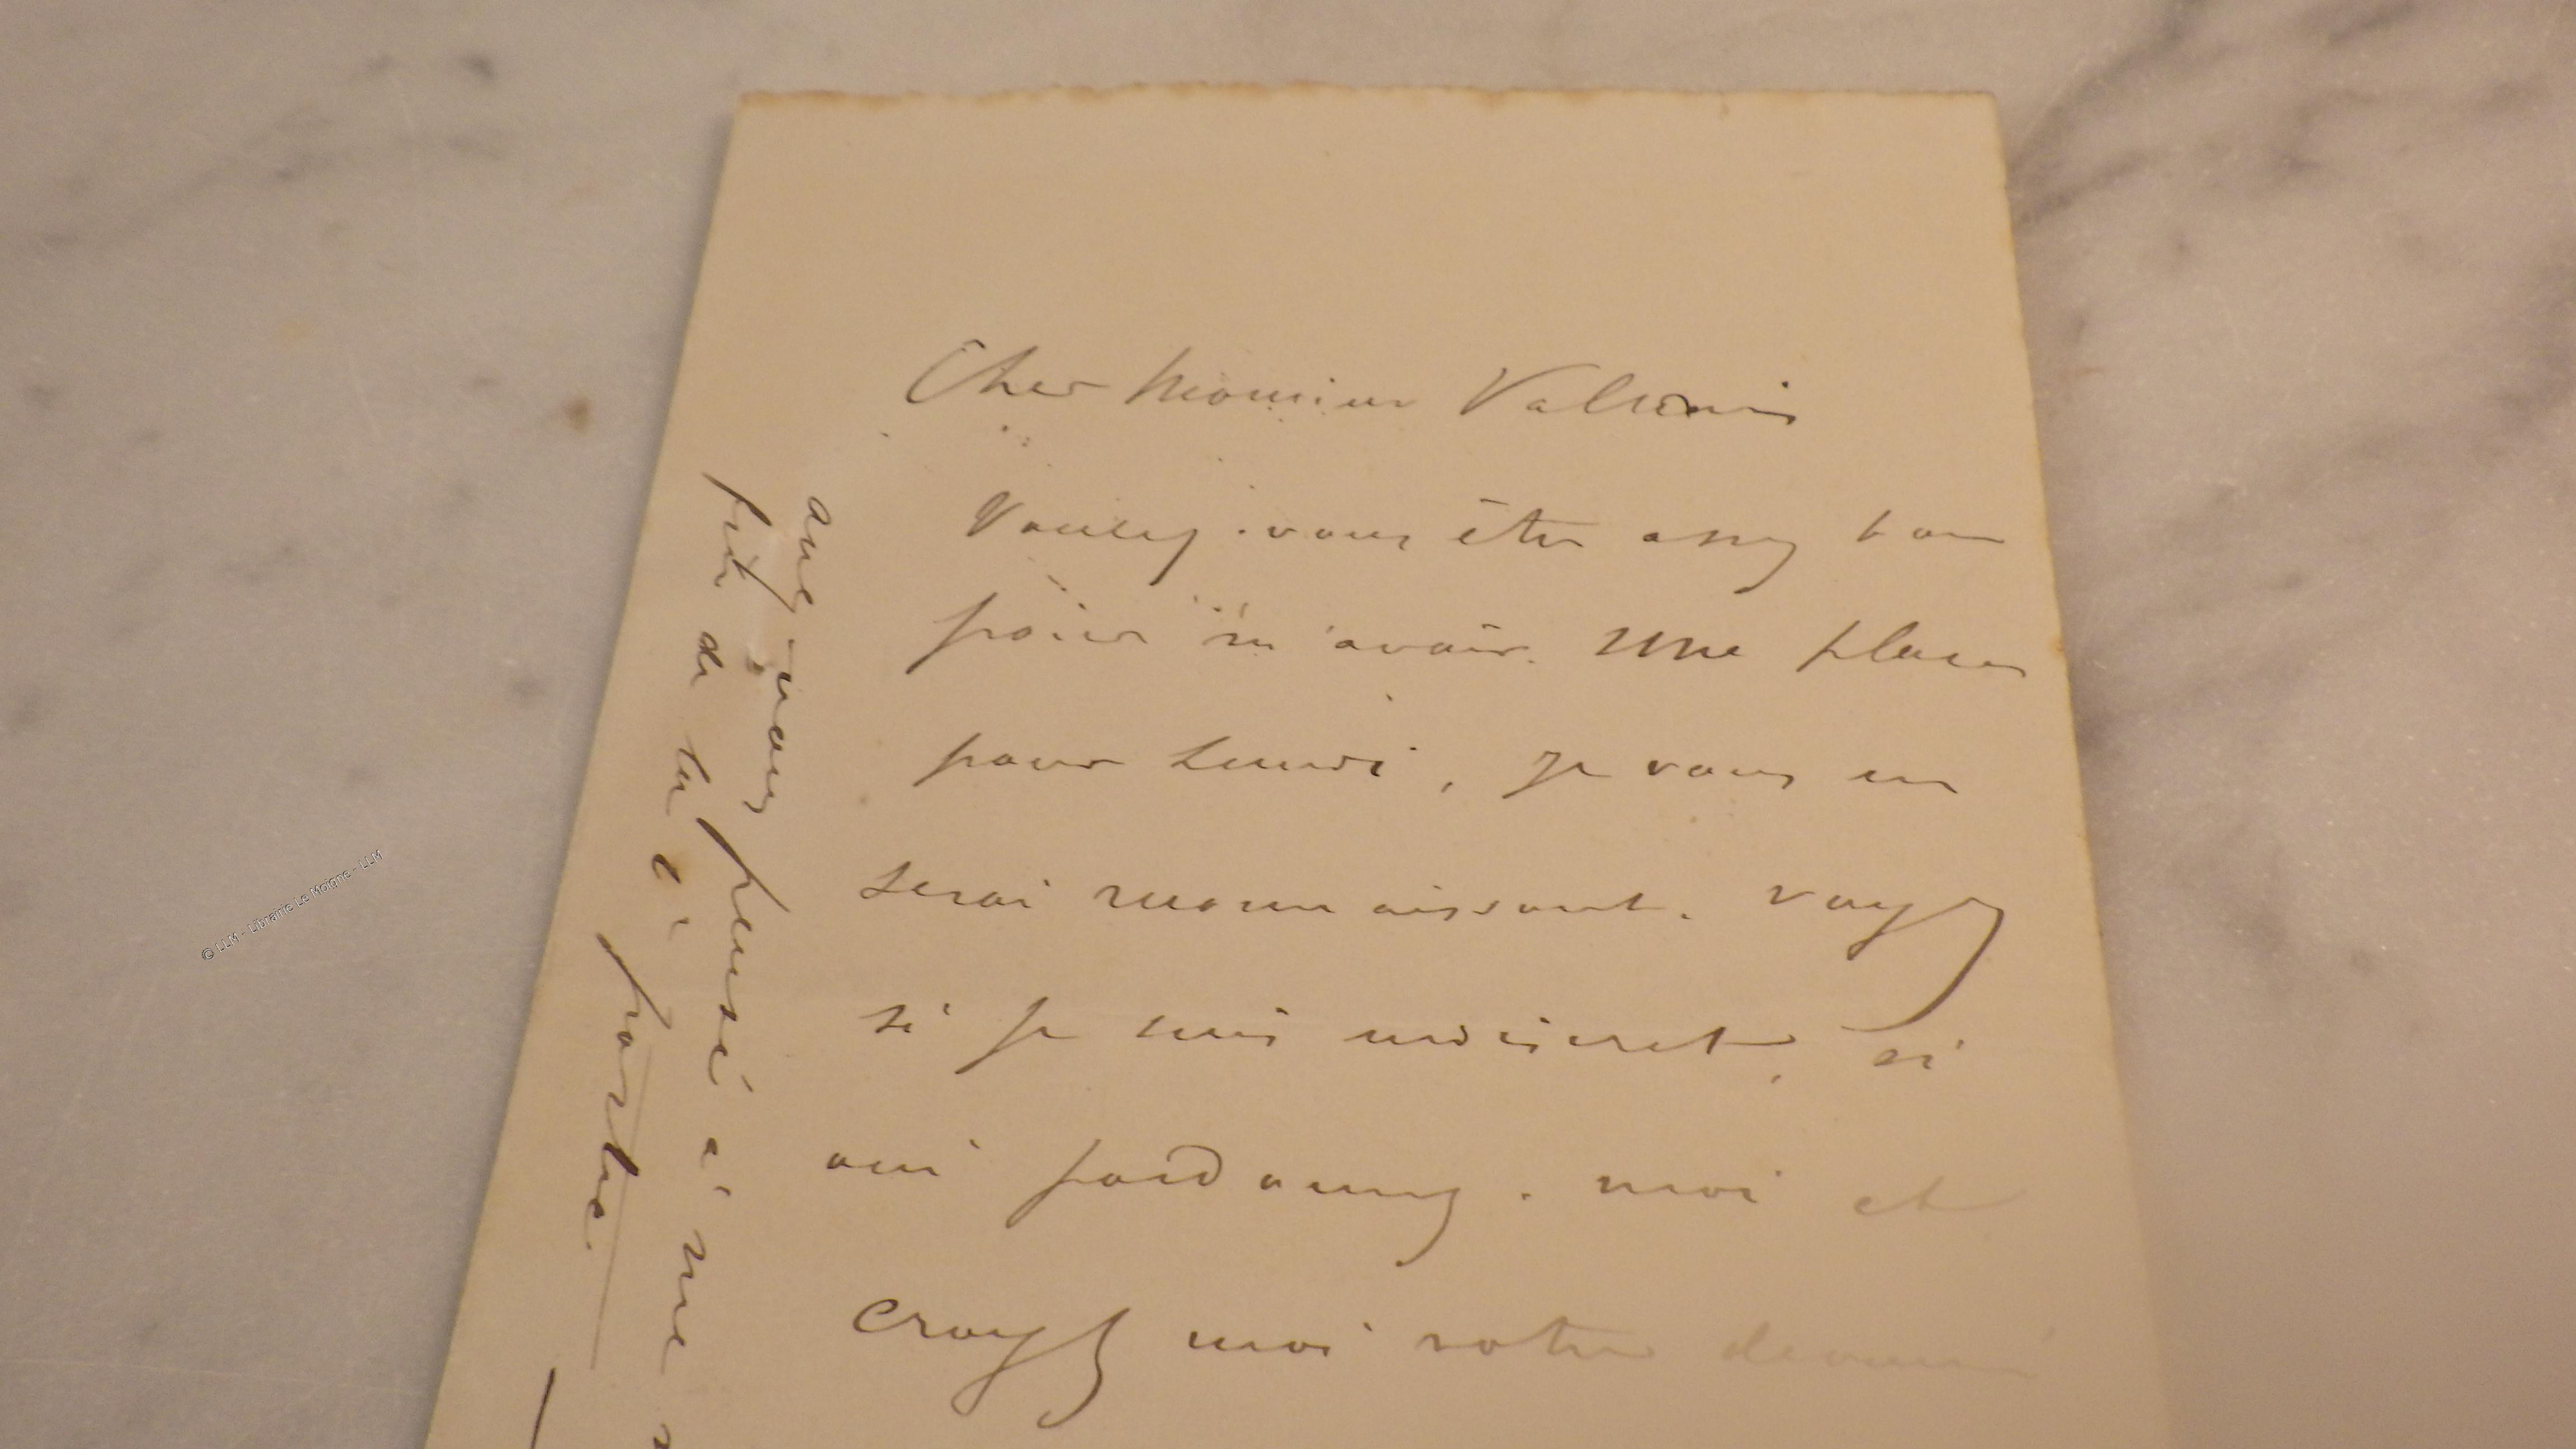 Cher Monsieur Valbonis
Voulez-vous être assez bon
pour m'avoir une place
pour Lundi, je vous en
serai reconnaissant. voyez
si je suis indiscret, si
oui pardonnez-moi et
croyez moi votre devoué
avez-vous pensé à me
fait de la
portée.
© LLM - Librairie Le Moigne - LLM